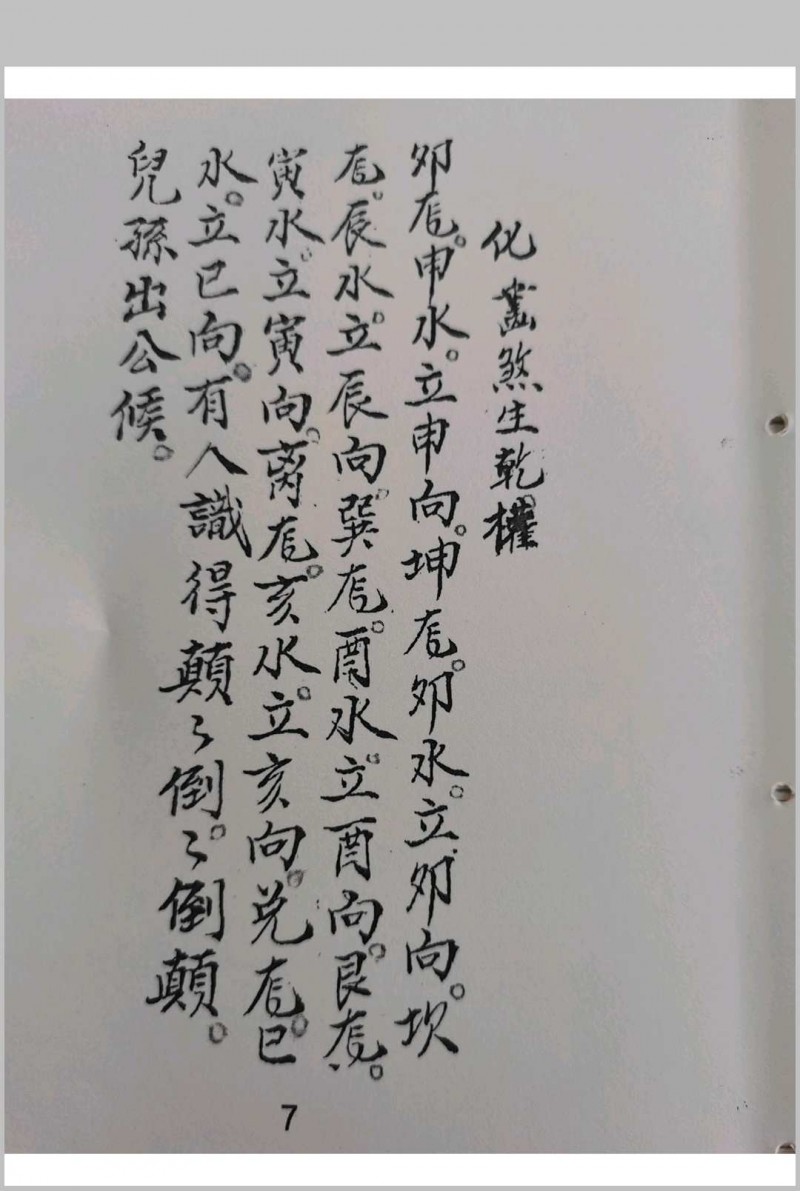 化煞生乾權
卯龙。申水。立申向。坤龙。卯水。立卯向。坎
龙。辰水。立辰向。巽龙。酉水。立酉向。艮龙。
寅水。立寅向。离龙。亥水。立亥向。兑龙。巳
水。立巳向。有人識得顛〻倒。〻倒顛。
兒孫出公候。
7